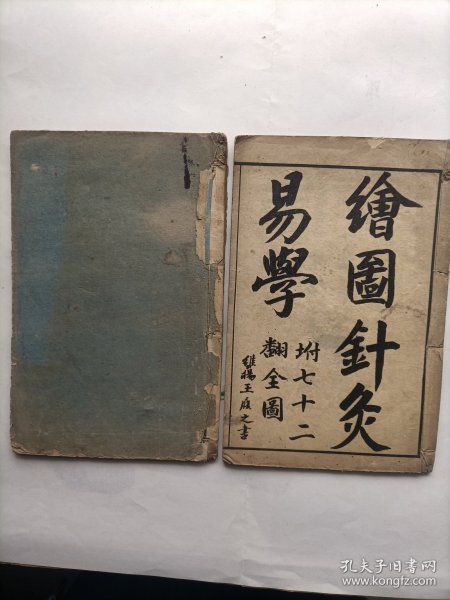 繪圖針灸
易學
坿七十二
翻全圖
維揚王庭之書
孔夫子旧书网
www.kongfz.com